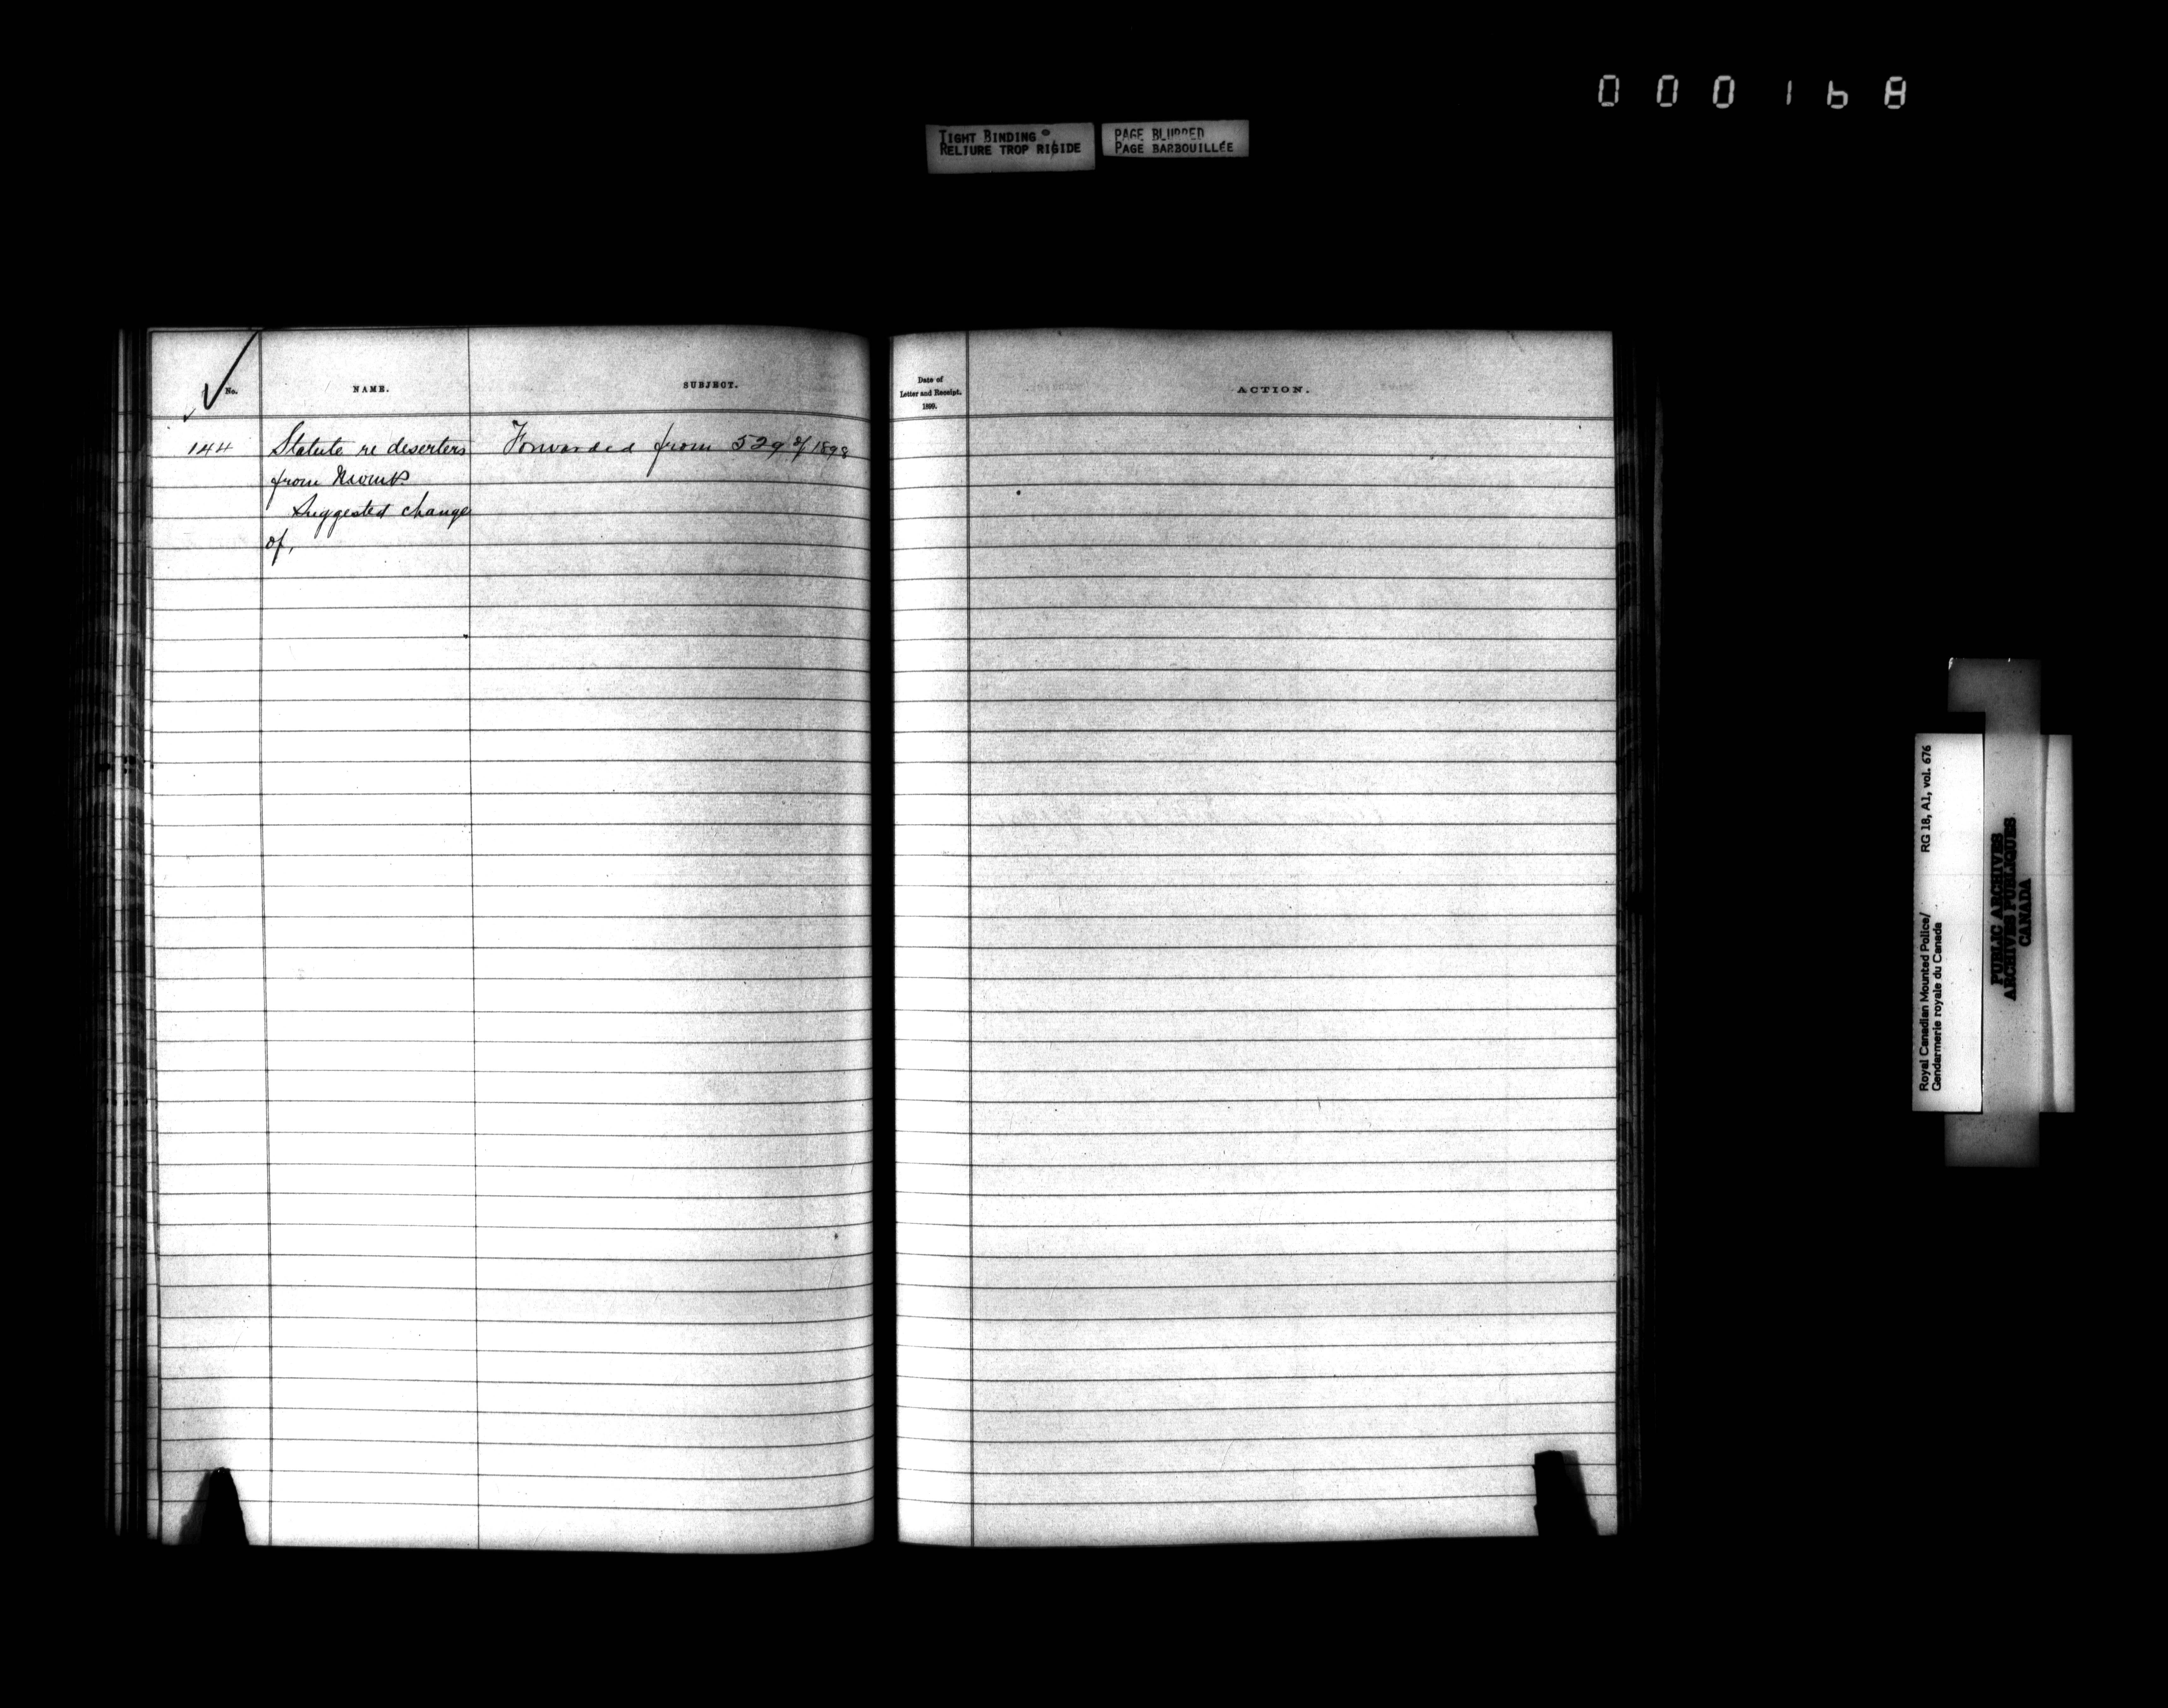 000168
TIGHT BINDING
RELIURE TROP RIGIDE
PAGE BLURRED
PAGE BARBOUILLÉE
No.
NAME.
SUBJECT.
Date of
Letter and Receipt.
1899.
ACTION.
144 Statute re deserters Forwarded from 529 of 1898
from NWMP
Suggested change
of,
Royal Canadian Mounted Police/ RG 18, A1, vol. 676
Gendarmerie royale du Canada
PUBLIC ARCHIVES
ARCHIVES PUBLIQUES
CANADA